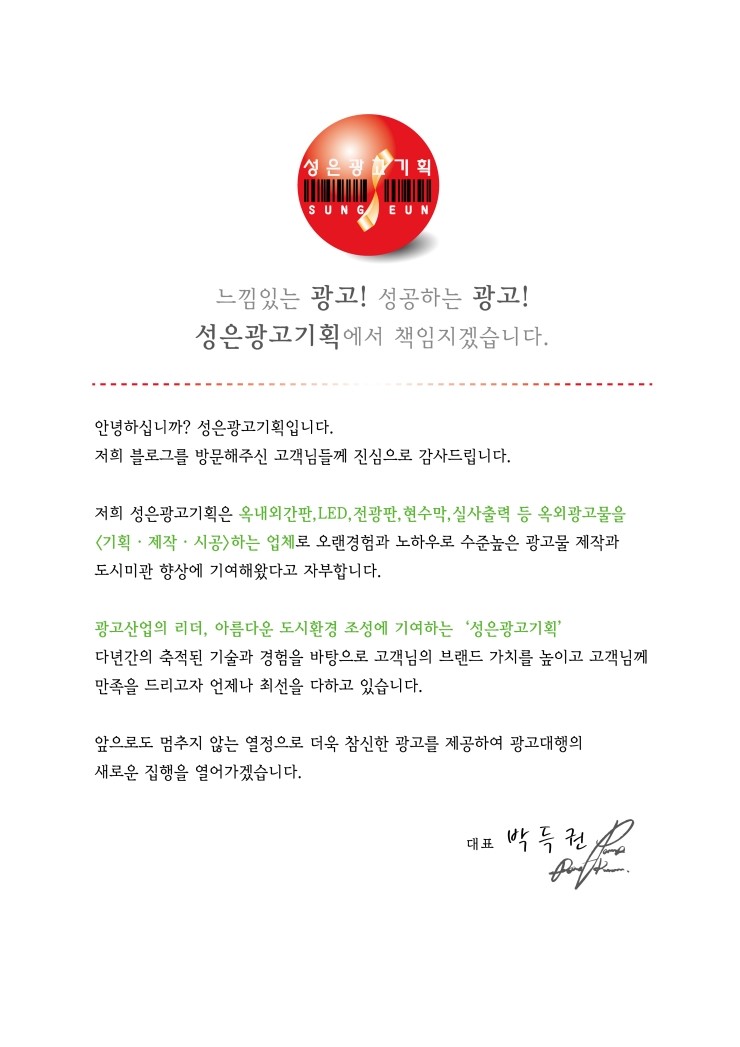 성은광고기획
SUNG EUN
느낌있는 광고! 성공하는 광고!
성은광고기획에서 책임지겠습니다.
안녕하십니까? 성은광고기획입니다.
저희 블로그를 방문해주신 고객님들께 진심으로 감사드립니다.
저희 성은광고기획은 옥내외간판,LED,전광판,현수막,실사출력 등 옥외광고물을
<기획 · 제작 · 시공>하는 업체로 오랜경험과 노하우로 수준높은 광고물 제작과
도시미관 향상에 기여해왔다고 자부합니다.
광고산업의 리더, 아름다운 도시환경 조성에 기여하는 ‘성은광고기획’
다년간의 축적된 기술과 경험을 바탕으로 고객님의 브랜드 가치를 높이고 고객님께
만족을 드리고자 언제나 최선을 다하고 있습니다.
앞으로도 멈추지 않는 열정으로 더욱 참신한 광고를 제공하여 광고대행의
새로운 집행을 열어가겠습니다.
대표 박득권